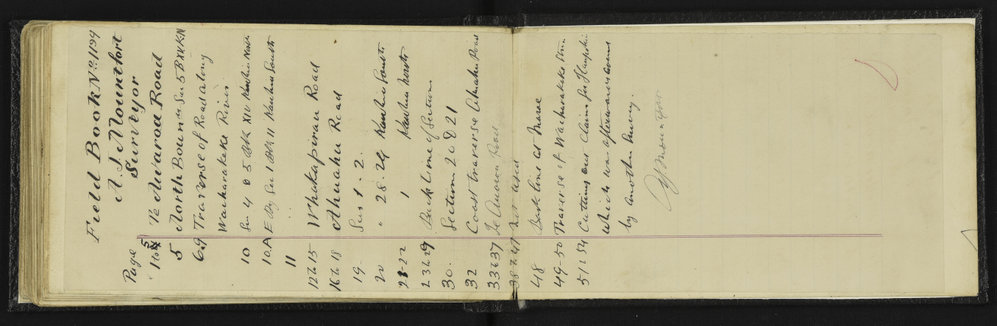 Field Book No 1139
A. J. Mountfort
Surveyor
Page
1 to 5 Te Awaroa Road
5 North Boundy Sec 5 B XV K.N
6 & 9 Traverse of Road along
Waiharakeke River
10 Sec 4 & 5 Blk XIV Kawhia North
10A E Bdy Sec 1 Blk II Kawhia South
11
12 to 15 Whakapirau Road
16 to 18 Ahuahu Road
19 Secs 1 . 2
20 " 28. 24 Kawhia South
22 1 Kawhia North
23 to 29 Back line of Section
30. Section 20 & 21
32 Coast traverse
33 to 37 Te Awaroa Road
38 to 47 not used
48 Back line at
49-50 Traverse of Waiharakeke
51 to 54 Cutting out Claim for
Which was afterwards done
by another survey.